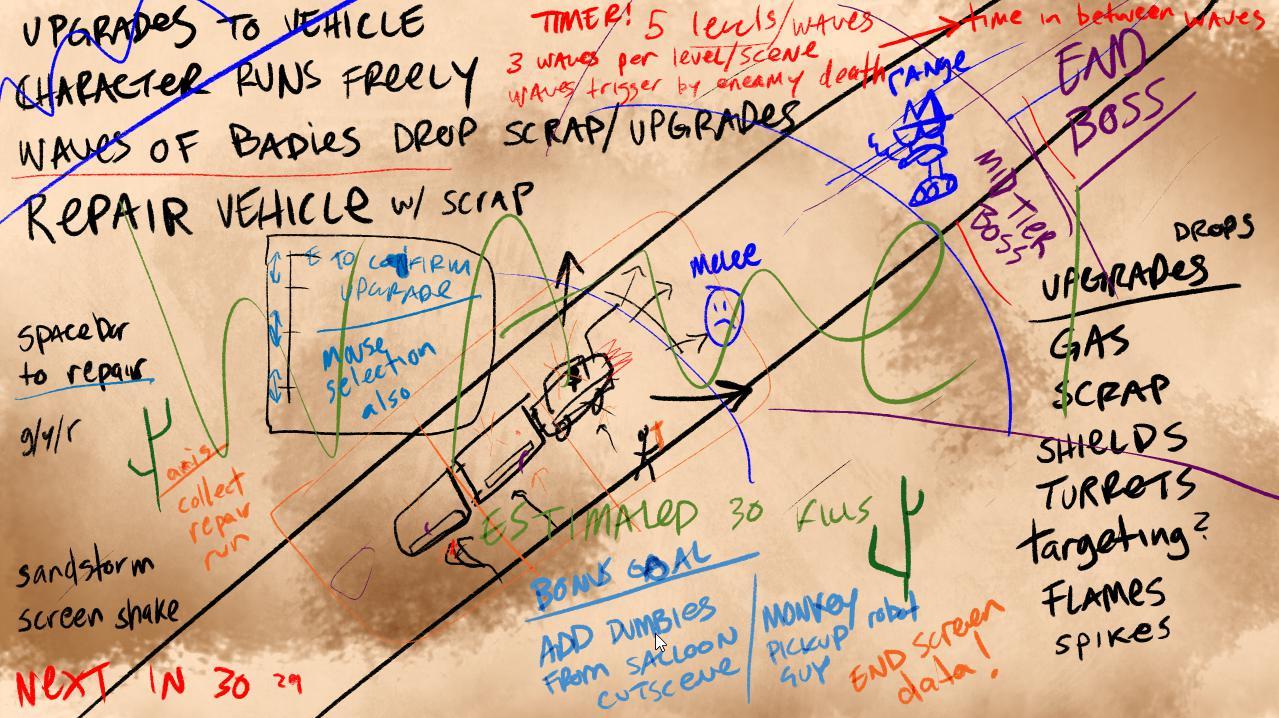 UPGRADES TO VEHICLE
CHARACTER RUNS FREELY
WAVES OF BADIES DROP SCRAP/UPGRADES
REPAIR VEHICLE w/ SCRAP
TIMER! 5 levels/waves
3 waves per level/scene
waves trigger by eneamy death
time in between waves
range
END
BOSS
MID TIER
BOSS
melee
TO CONFIRM
UPGRADE
mouse
selection
also
spacebar
to repair
g/y/r
axis
collect
repair
run
sandstorm
screen shake
NEXT IN 30 29
ESTIMALED 30 KILLS
BONUS GOAL
ADD DUMBIES
FROM SALLOON
CUTSCENE
MONKEY robot
PICKUP
GUY
END screen
data!
DROPS
UPGRADES
GAS
SCRAP
SHIELDS
TURRETS
targeting?
FLAMES
SPIKES